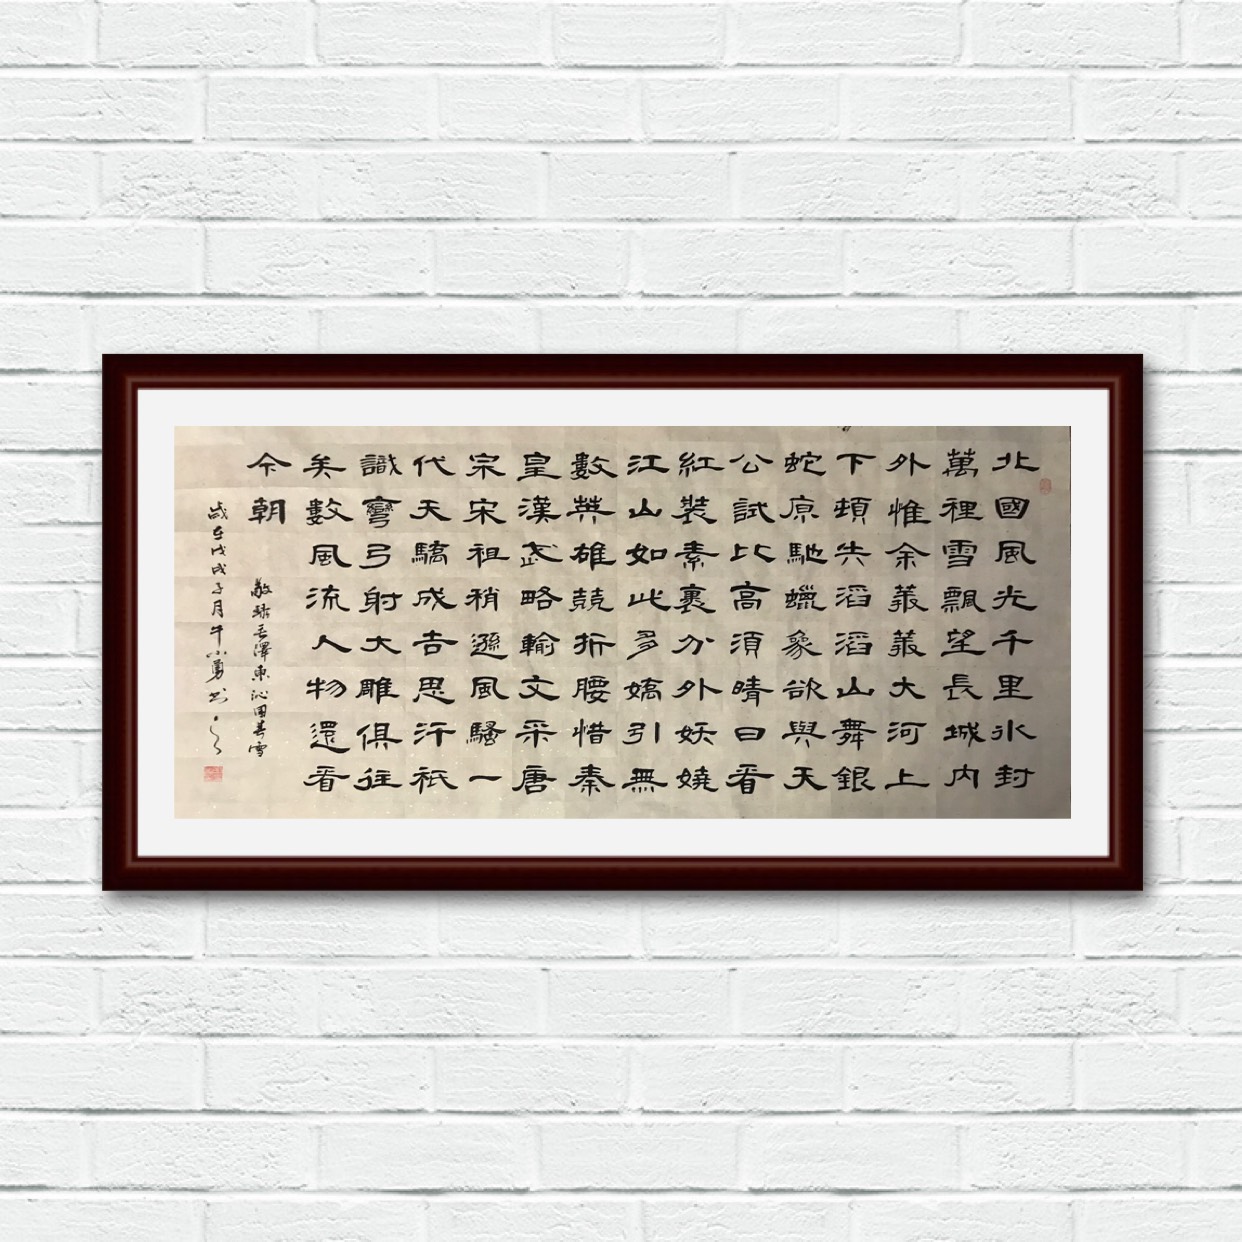 北國風光千里冰封
萬裡雪飄望長城內
外惟余莽莽大河上
下頓失滔滔山舞銀
蛇原馳蠟象欲與天
公試比高須晴日看
紅裝素裹分外妖嬈
江山如此多嬌引無
數英雄競折腰惜秦
皇漢武略輸文采唐
宗宋祖稍遜風騷一
代天驕成吉思汗祇
識彎弓射大雕俱往
矣數風流人物還看
今朝
敬錄毛澤東沁园春雪
歲在戊戌子月牛小勇书